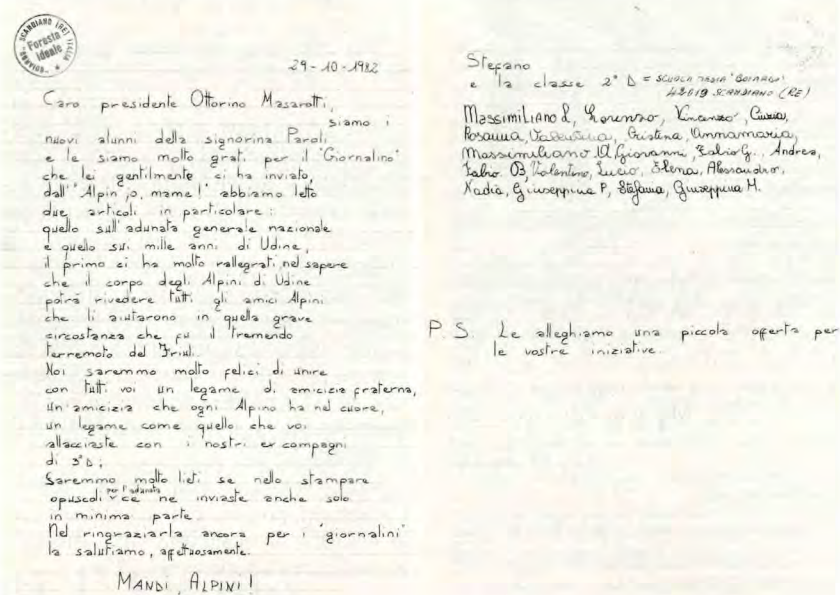 BOIARDO - SCANDIANO (RE) ITALIA
Foresta
Ideale
29-10-1982
Caro presidente Ottorino Masarotti,
siamo i
nuovi alunni della signorina Paroli
e le siamo molto grati per il "Giornalino"
che lei gentilmente ci ha inviato,
dall' "Alpin jo, mame!" abbiamo letto
due articoli in particolare:
quello sull'adunata generale nazionale
e quello sui mille anni di Udine,
il primo ci ha molto rallegrati nel sapere
che il corpo degli Alpini di Udine
potrà rivedere tutti gli amici Alpini
che li aiutarono in quella grave
circostanza che fu il tremendo
terremoto del Friuli.
Noi saremmo molto felici di unire
con tutti voi un legame di amicizia fraterna,
un'amicizia che ogni Alpino ha nel cuore,
un legame come quello che voi
allacciaste con i nostri ex compagni
di 3° D;
Saremmo molto lieti se nello stampare
opuscoli per l'adunata ce ne inviaste anche solo
in minima parte.
Nel ringraziarla ancora per i "giornalini"
la salutiamo, affettuosamente.
MANDI, ALPINI!
Stefano
e la classe 2° D = SCUOLA MEDIA "BOIARDO"
42019 SCANDIANO (RE)
Massimiliano L, Lorenzo, Vincenzo, Cinzia,
Rosanna, Valentina, Cristina, Annamaria,
Massimiliano M, Giovanni, Fabio G., Andrea,
Fabio B, Valentino, Lucio, Elena, Alessandro,
Nadia, Giuseppina P, Stefania, Giuseppina M.
P.S. Le alleghiamo una piccola offerta per
le vostre iniziative.